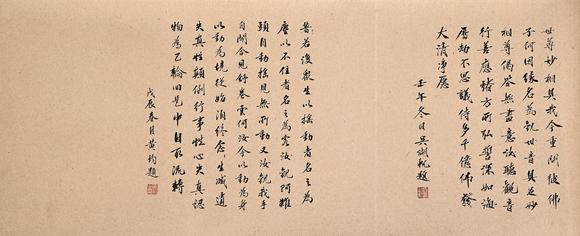 世尊妙相具我今重問彼佛
子何因緣名為觀世音具足妙
相尊偈答無盡意汝聽觀音
行善應諸方所弘誓深如海
歷劫不思議侍多千億佛發
大清淨願
壬午冬日吳湖帆題
若復眾生以搖動者名之為
塵以不住者名之為客汝觀阿難
頭自動搖見無所動又汝觀我手
自開合見舒卷云何汝今以動為身
以動為境從始洎終念念生滅遺
失真性顛倒行事性心失真認
物為己輪迴是中自取流轉
戊辰春月黃均題